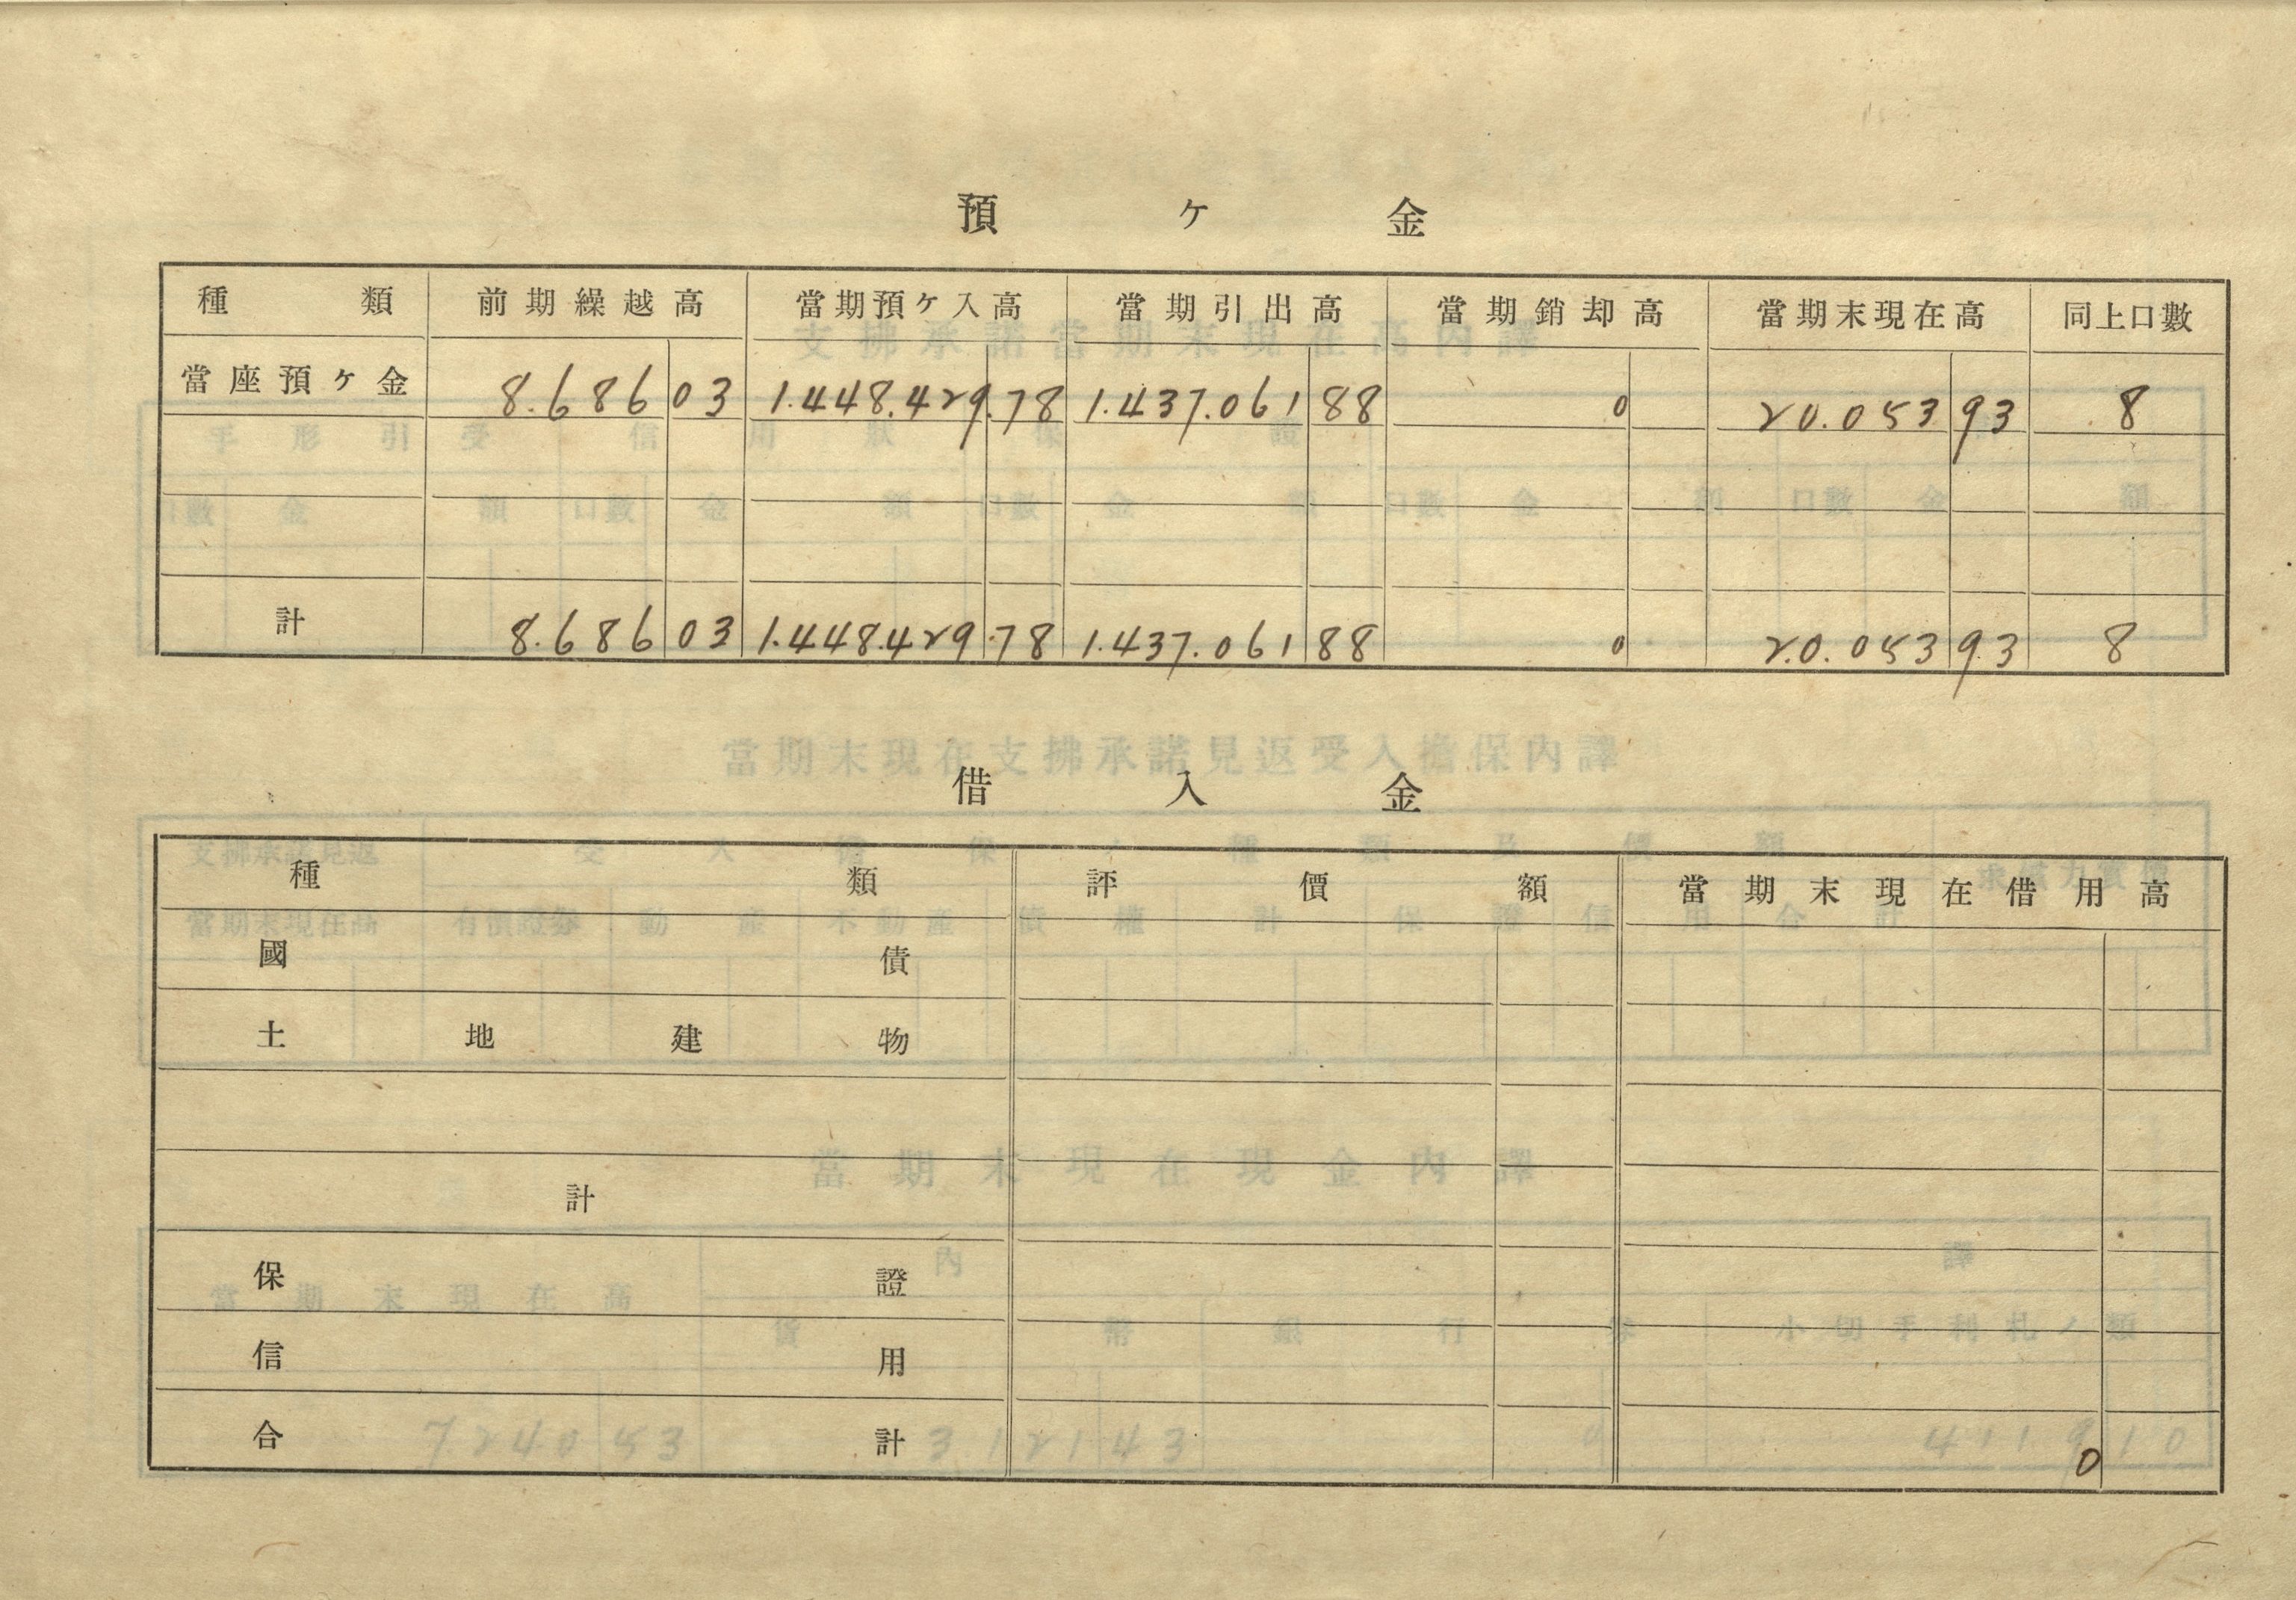 預ケ金
種類 前期繰越高 當期預ケ入高 當期引出高 當期銷却高 當期末現在高 同上口數
當座預ケ金 8.686 03 1.448.429.78 1.437.061 88 0 20.053 93 8
計 8.686 03 1.448.429.78 1.437.061 88 0 20.053 93 8
當期末現在支拂承諾見返受入擔保內譯
借入金
種類 評價額 當期末現在借用高
國債
土地建物
當期末現在現金內譯
計
保證
信用
合計 0